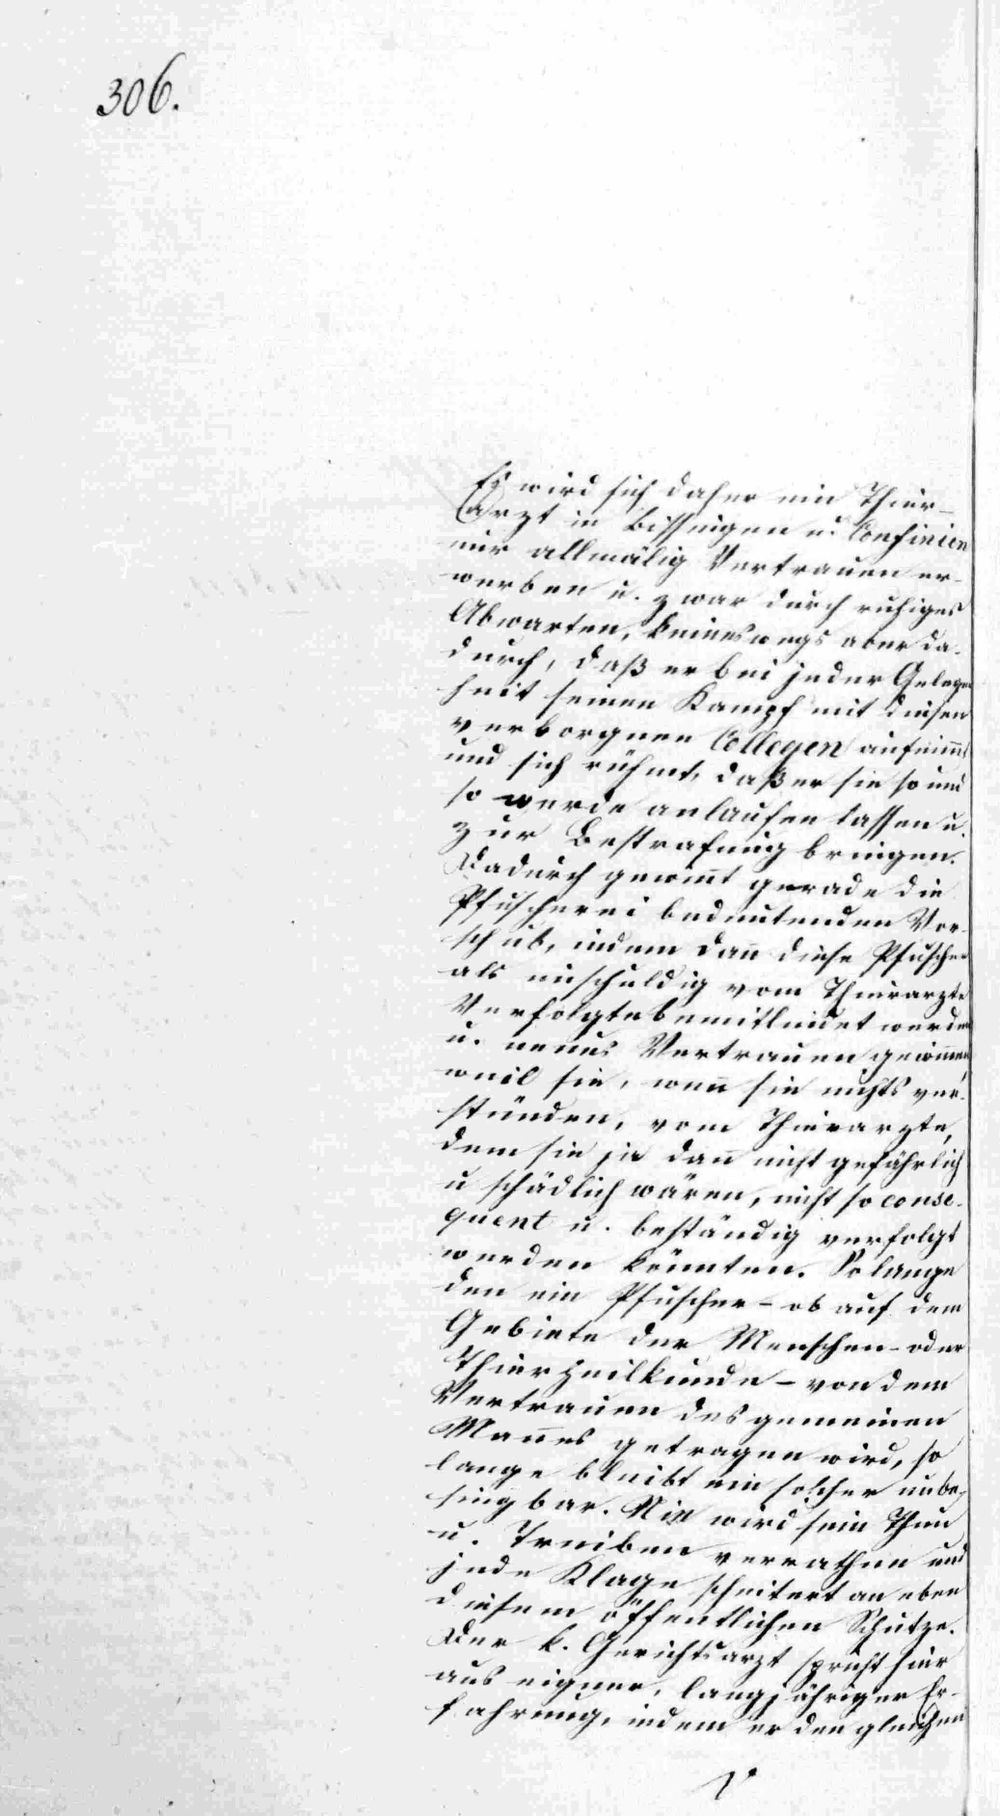 306.
Es wird sich daher ein Thier-
arzt in Bissingen u. Confinien
nur allmälig Vertrauen er-
werben u. zwar durch ruhiges
Abwarten, keineswegs aber da-
durch, daß er bei jeder Gelegen
heit seinen Kampf mit diesen
verborgnen Collegen aufnimmt
und sich rühmt, daß er sie so und
so werde anlaufen lassen u.
zur Bestrafung bringen.
Dadurch gewinnt gerade die
Pfuscherei bedeutenden Vor-
schub, indem dann diese Pfuscher
als unschuldig vom Thierarzte
Verfolgte bemitleidet werden
u. neues Vertrauen gewinnen,
weil sie, wenn sie nichts ver-
stünden, vom Thierarzte,
dem sie ja dann nicht gefährlich
u schädlich wären, nicht so conse-
quent u. beständig verfolgt
werden könnten. So lange
den ein Pfuscher - ob auf dem
Gebiete der Menschen- oder
Thierheilkunde - von dem
Vertrauen des gemeinen
Mannes getragen wird, so
lange bleibt ein solcher unbe-
singbar. Nie wird sein Thun
u. Treiben verrathen und
jede Klage scheitert an eben
diesem öffentlichen Schutze.
Der k. Gerichtsarzt spricht hier
aus eigner, langjähriger Er-
fahrung, indem er den gleichen